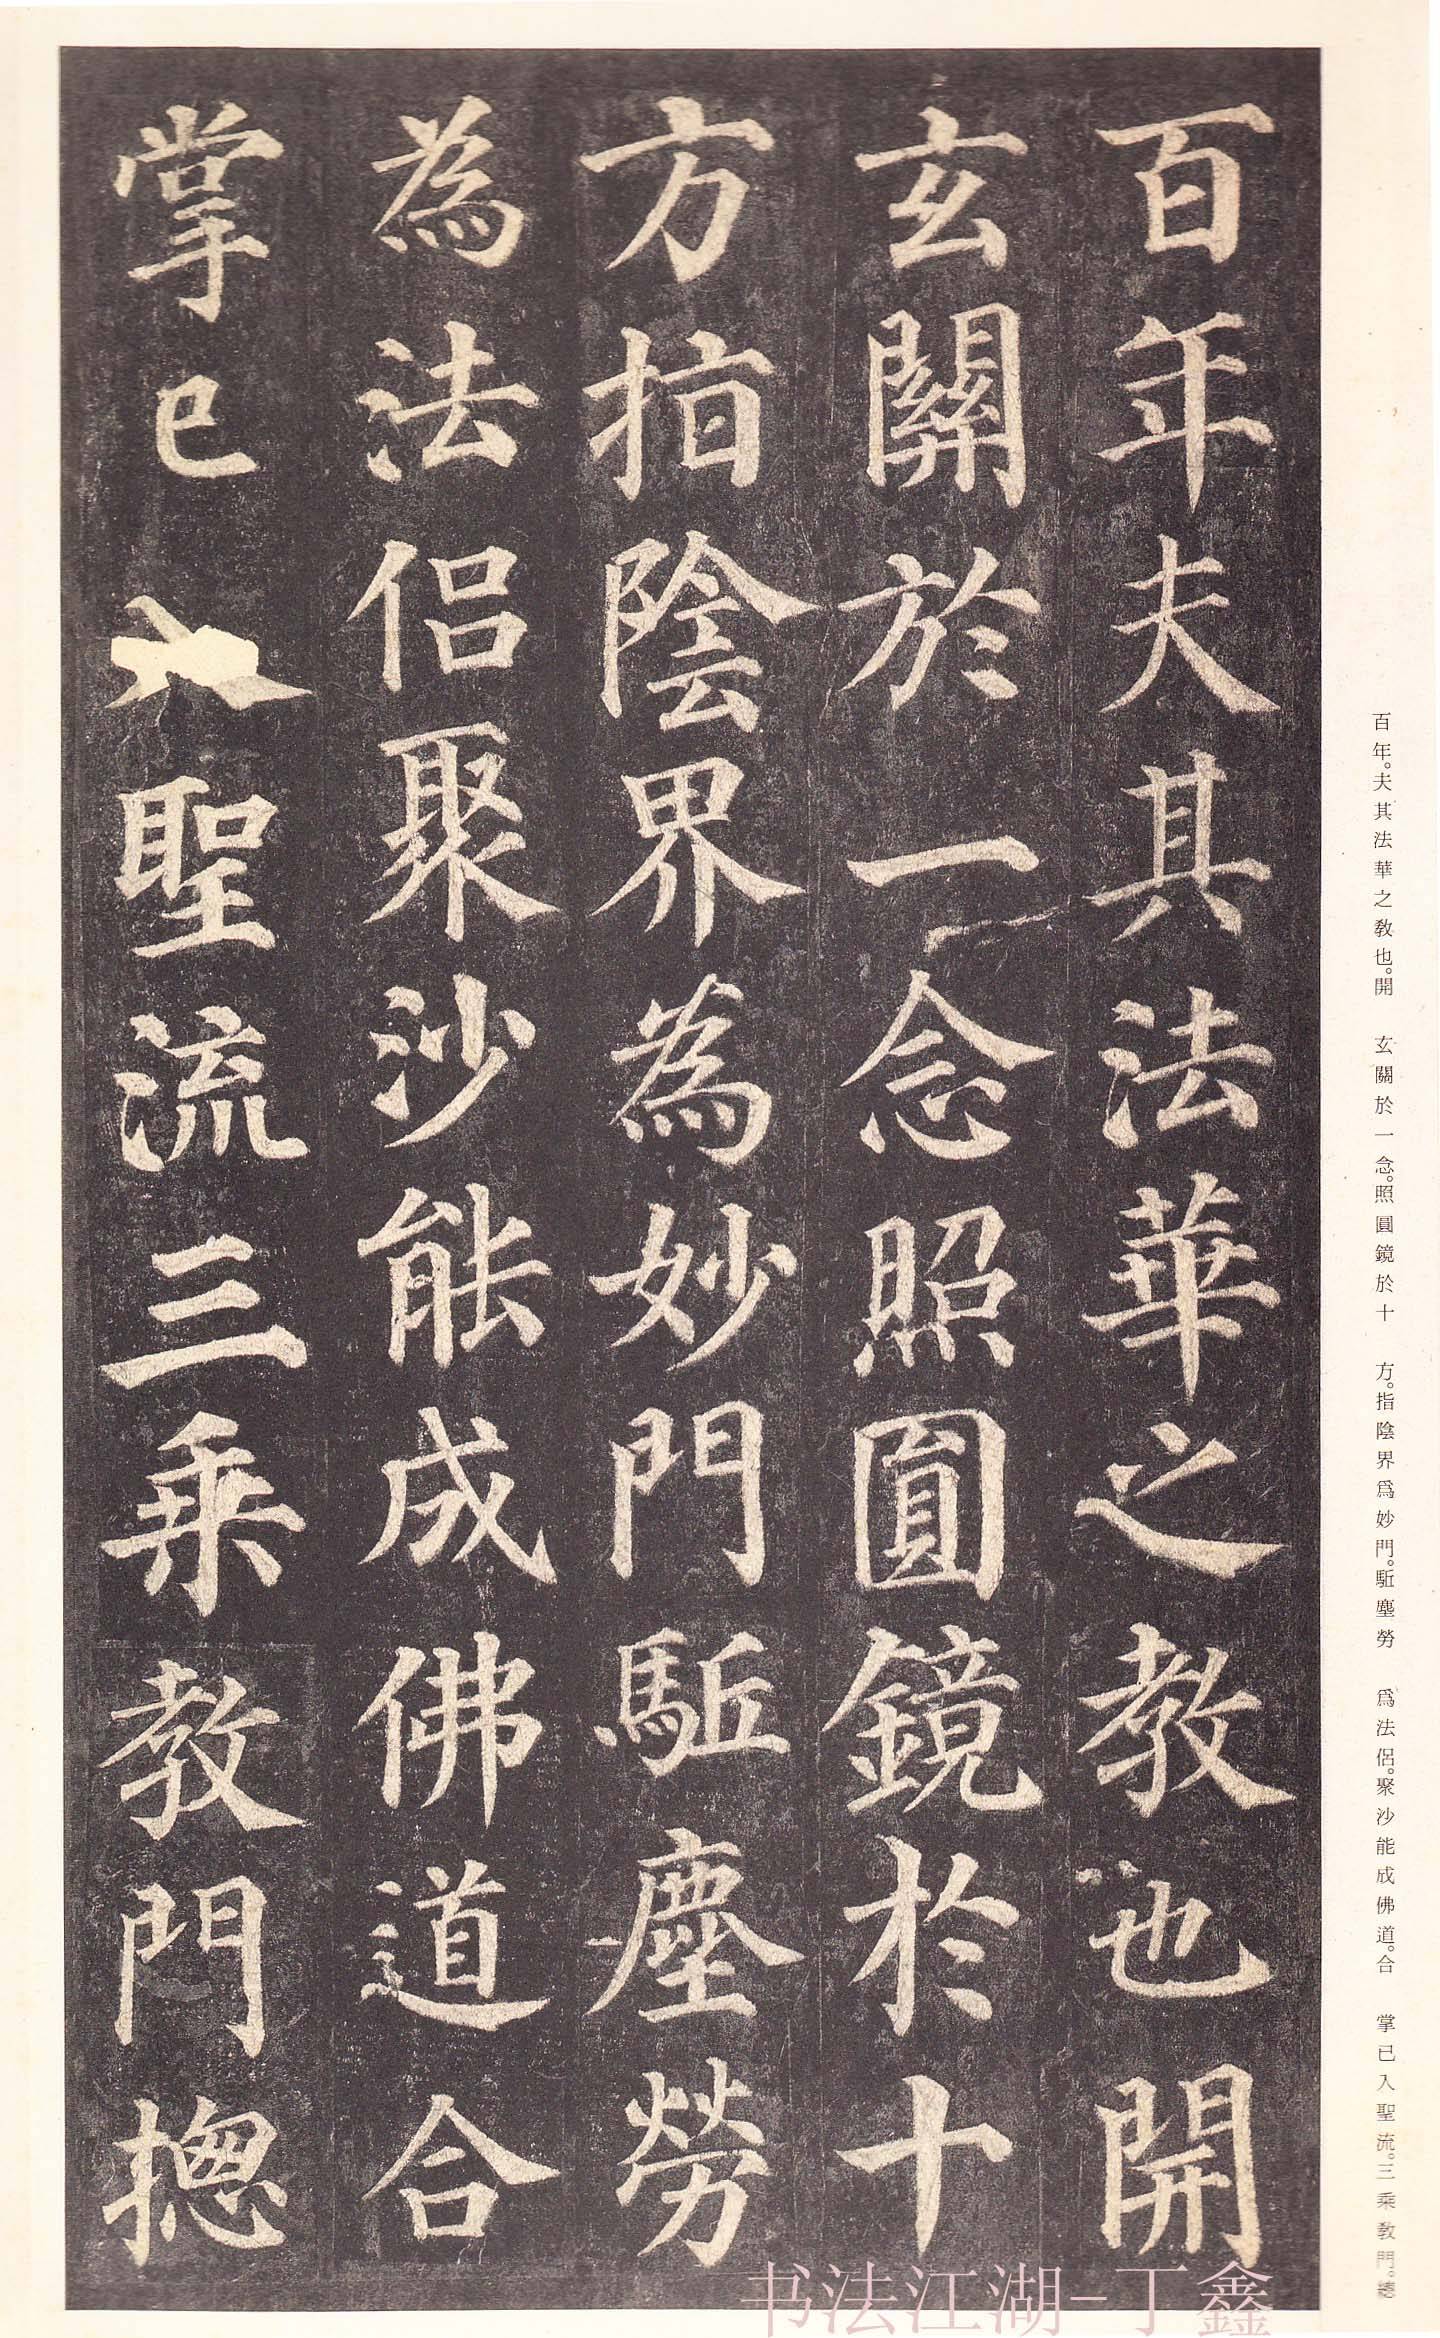 百年夫其法華之教也開
玄關於一念照圓鏡於十
方指陰界為妙門駈塵勞
為法侶聚沙能成佛道合
掌已入聖流三乘教門揔
百年。夫其法華之教也。開　玄關於一念。照圓鏡於十　方。指陰界爲妙門。駈塵勞　爲法侶。聚沙能成佛道。合　掌已入聖流。三乘教門。總
书法江湖-丁鑫